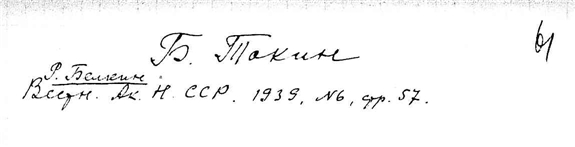 Б. Токин
Р. Белкин
Вестн. Ак. Н. ССР. 1939, №6, стр. 57.